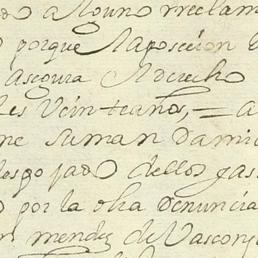 do a Nouno rreclam
porque Laposecion d
asegura Aderecho
les Veinteaños, = a
ne suman Damia
despojado dellos gas
por la dha denuncia
mendez de Vasconz